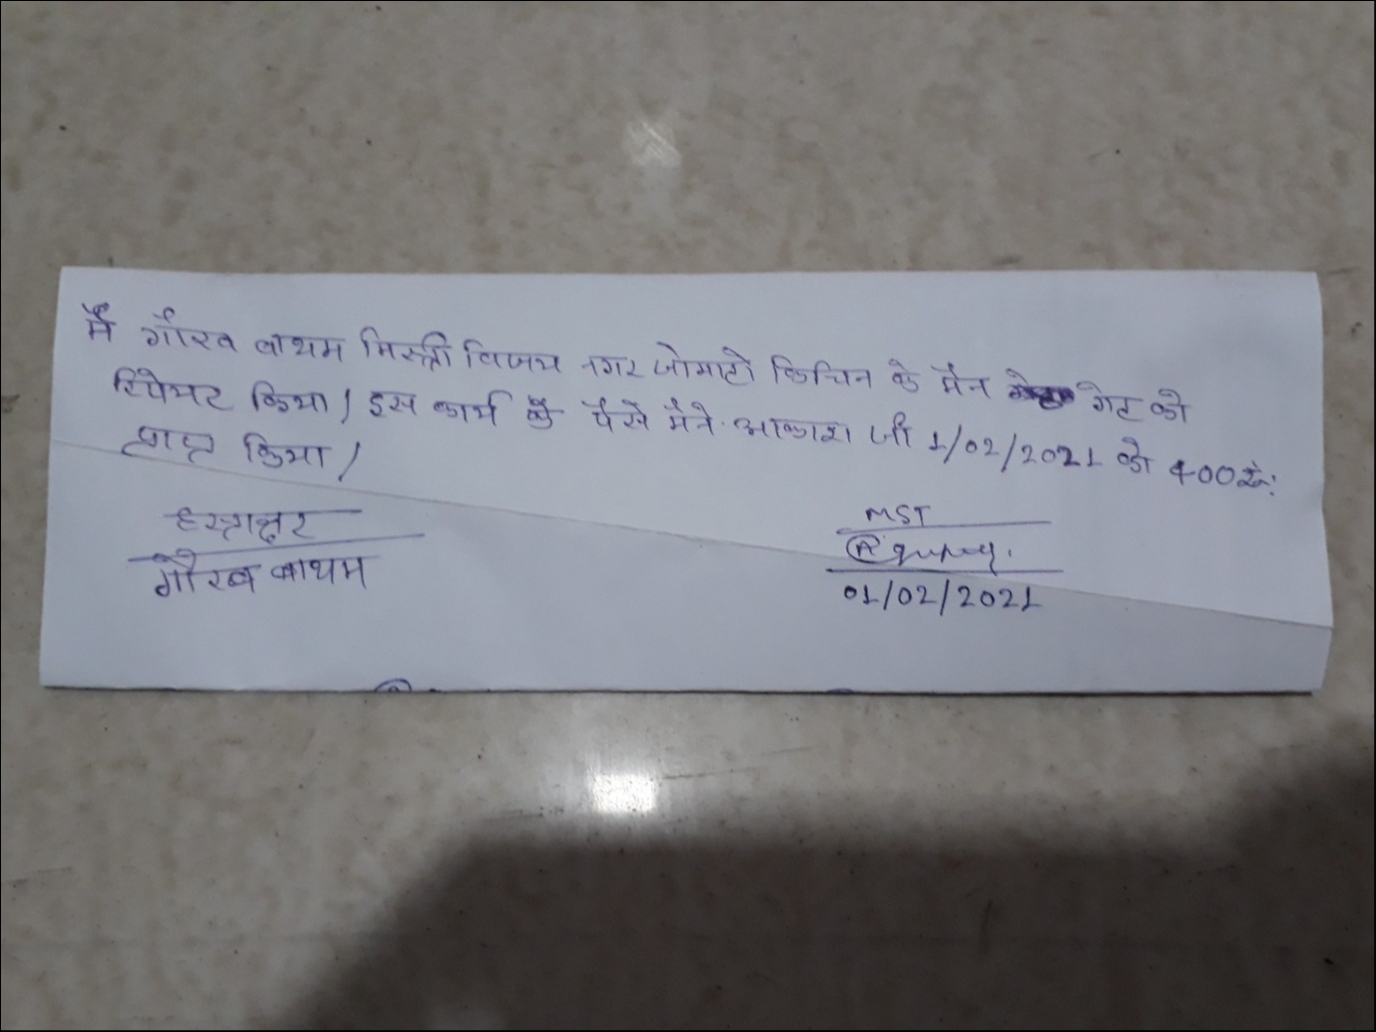 मैं गौरव बाथम मिस्त्री विजय नगर जोमाटो किचिन के मैन गेट को
रिपेयर किया। इस कार्य के पैसे मैने आकाश जी 1/02/2021 को 400रू:
प्राप्त किया।
हस्ताक्षर
गौरव बाथम
MST
01/02/2021